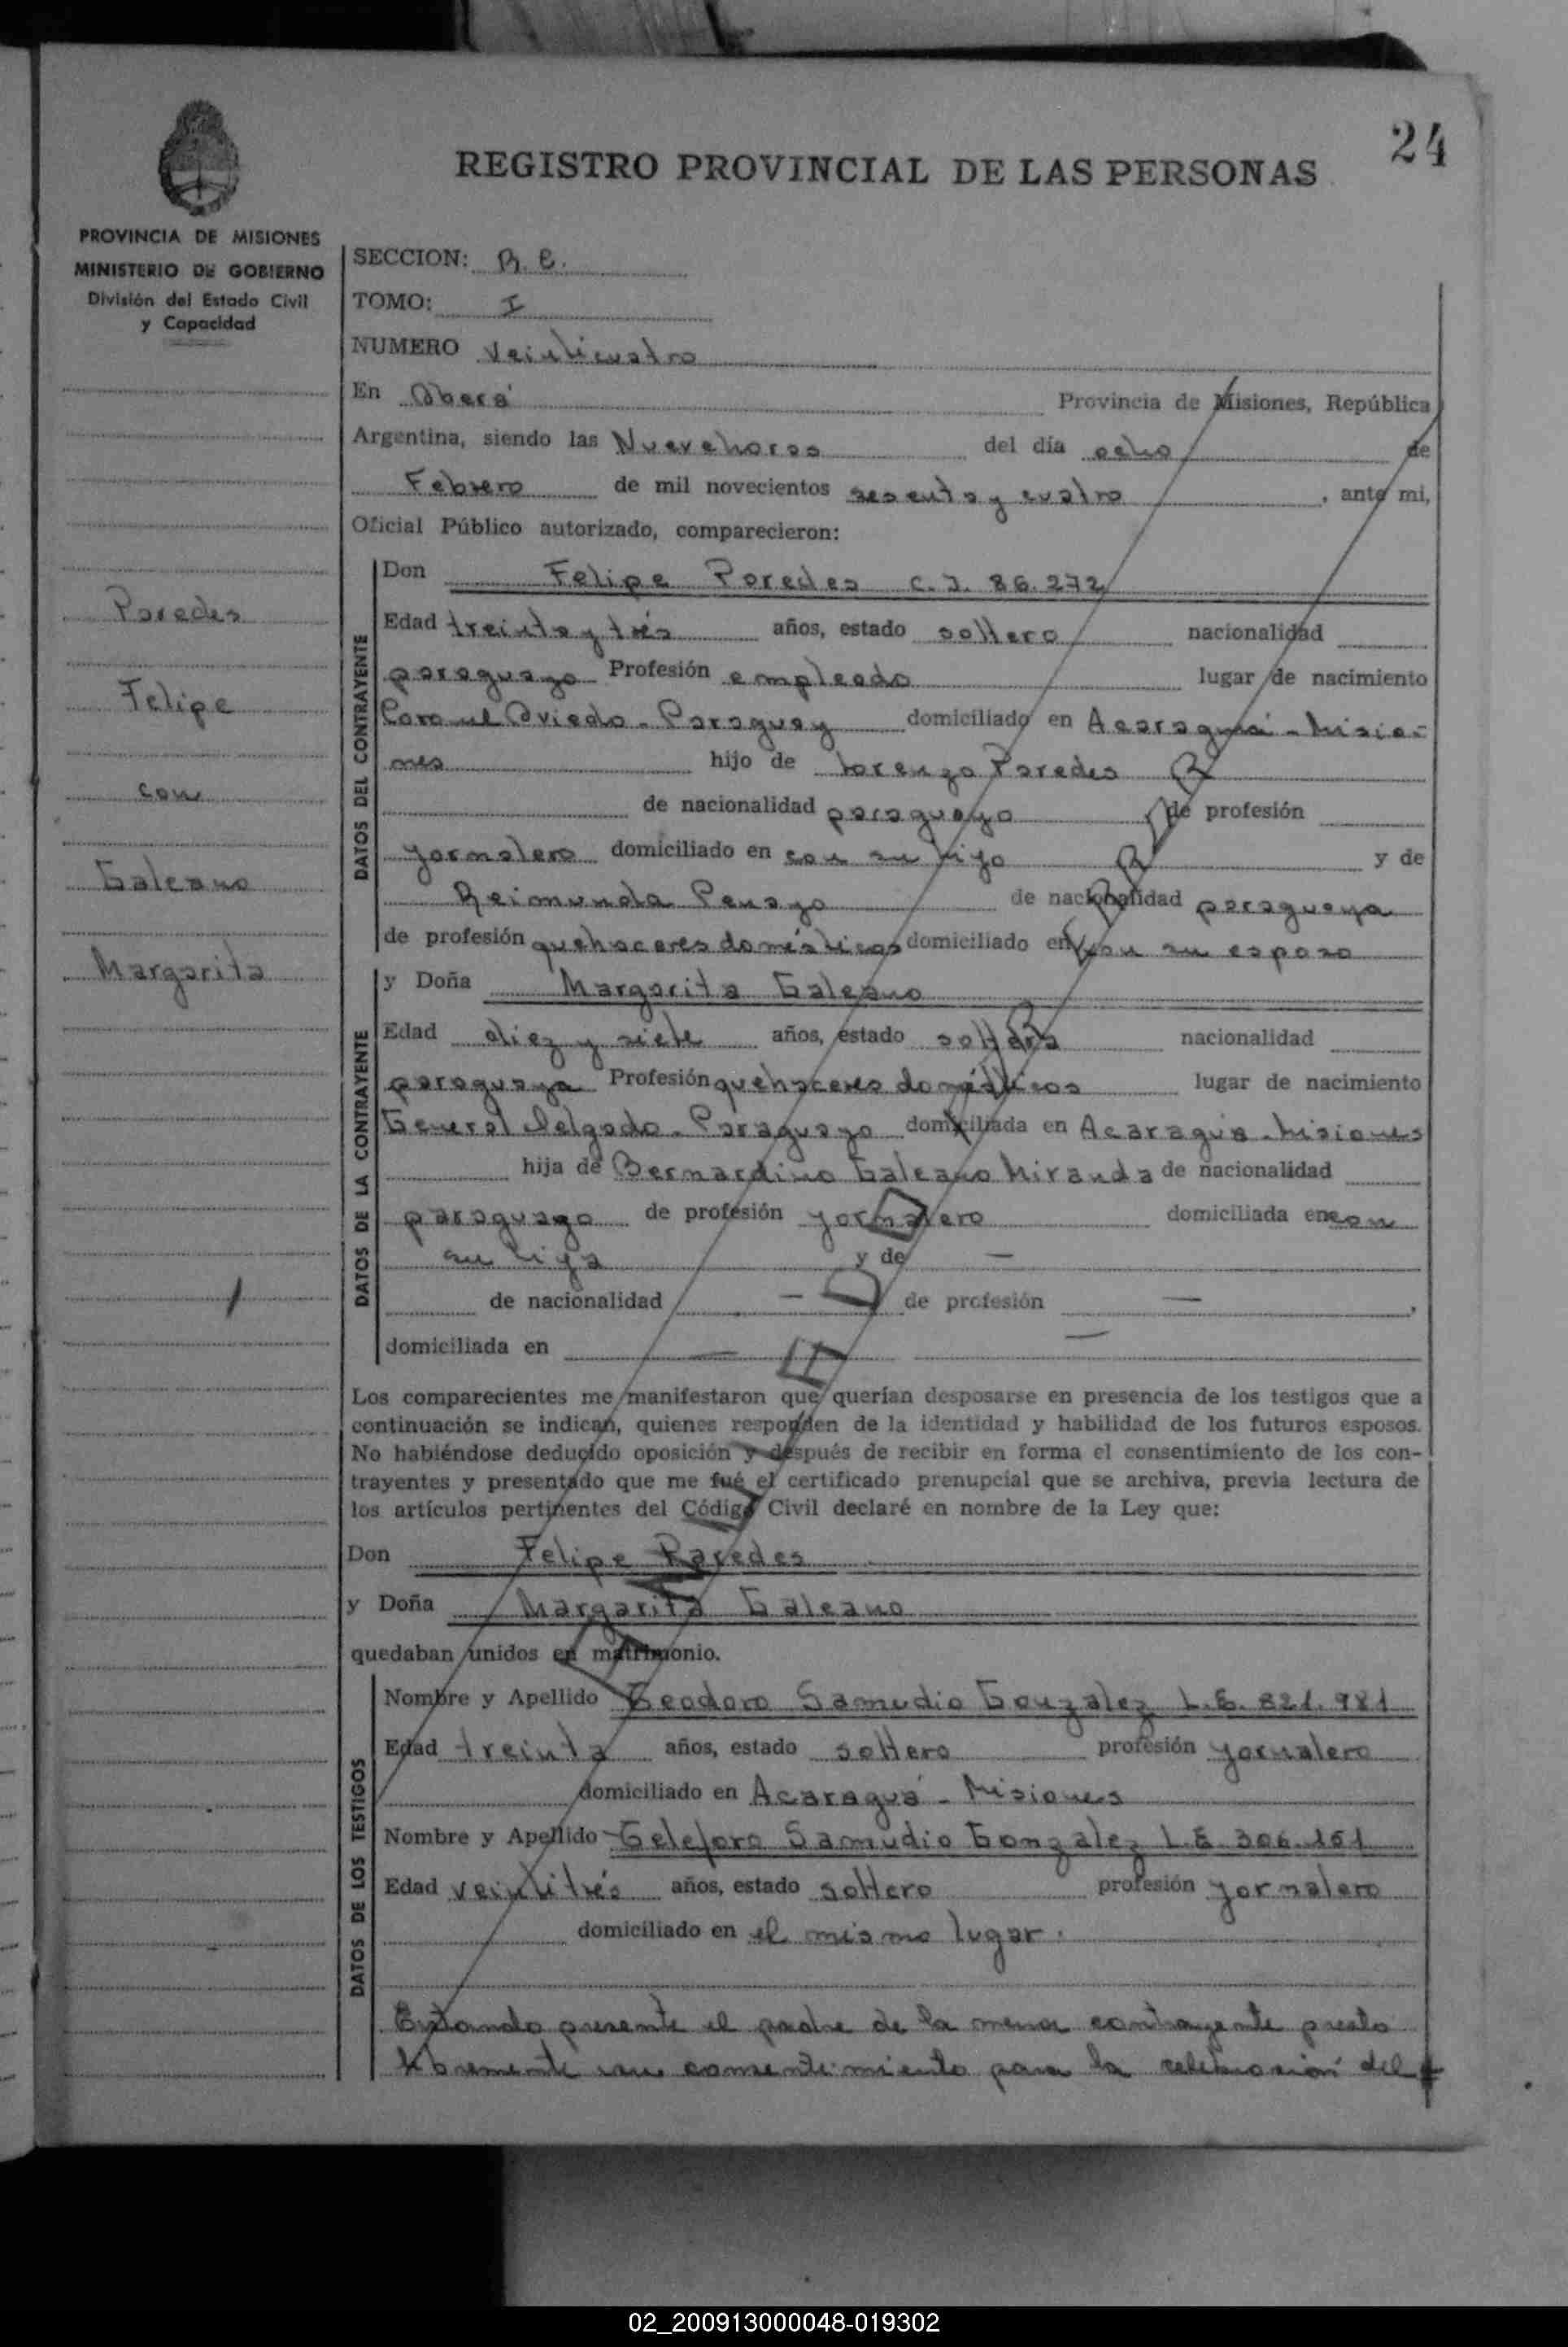 24
REGISTRO PROVINCIAL DE LAS PERSONAS
PROVINCIA DE MISIONES
MINISTERIO DE GOBIERNO
División del Estado Civil
y Capacidad
Paredes
Felipe
con
Galeano
Margarita
SECCION: R. C.
TOMO: I
NUMERO Veinticuatro
En Oberá Provincia de Misiones, República
Argentina, siendo las Nueve horas del día ocho de
Febrero de mil novecientos sesenta y cuatro, ante mi,
Oficial Público autorizado, comparecieron:
DATOS DEL CONTRAYENTE
Don Felipe Paredes C.I. 86.272
Edad treinta y trés años, estado soltero nacionalidad
paraguayo Profesión empleado lugar de nacimiento
Coronel Oviedo - Paraguay domiciliado en Acaraguá - Misio-
nes hijo de Lorenzo Paredes
de nacionalidad paraguayo de profesión
jornalero domiciliado en con su hijo y de
Reimunda Penayo de nacionalidad paraguaya
de profesión quehaceres domésticos domiciliado en con su esposo
DATOS DE LA CONTRAYENTE
y Doña Margarita Galeano
Edad diez y siete años, estado soltera nacionalidad
paraguaya Profesión quehaceres domésticos lugar de nacimiento
General Delgado - Paraguayo domiciliada en Acaraguá - Misiones
hija de Bernardino Galeano Miranda de nacionalidad
paraguayo de profesión jornalero domiciliada en con
su hija y de —
de nacionalidad — de profesión —,
domiciliada en — —
Los comparecientes me manifestaron que querían desposarse en presencia de los testigos que a
continuación se indican, quienes responden de la identidad y habilidad de los futuros esposos.
No habiéndose deducido oposición y después de recibir en forma el consentimiento de los con-
trayentes y presentado que me fué el certificado prenupcial que se archiva, previa lectura de
los artículos pertinentes del Código Civil declaré en nombre de la Ley que:
Don Felipe Paredes
y Doña Margarita Galeano
quedaban unidos en matrimonio.
DATOS DE LOS TESTIGOS
Nombre y Apellido Teodoro Samudio Gonzalez L.E. 821.981
Edad treinta años, estado soltero profesión jornalero
domiciliado en Acaraguá - Misiones
Nombre y Apellido Telesforo Samudio Gonzalez L.E. 306.151
Edad veintitrés años, estado soltero profesión jornalero
domiciliado en el mismo lugar.
Estando presente el padre de la menor contrayente presto
libremente su consentimiento para la celebración del
02_200913000048-019302